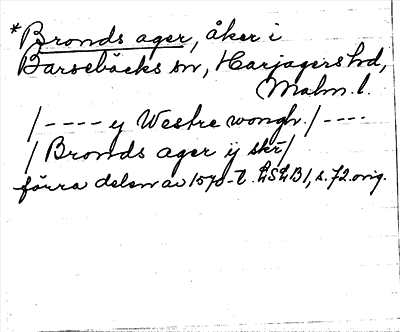 *Bronds ager, åker i
Barsebäcks sn, Harjagers hd,
Malm. l.
/---- y Westre wongh./----
/Bronds ager ij skr/
förra delen av 1570-t. LSLB1, s. 72. orig.